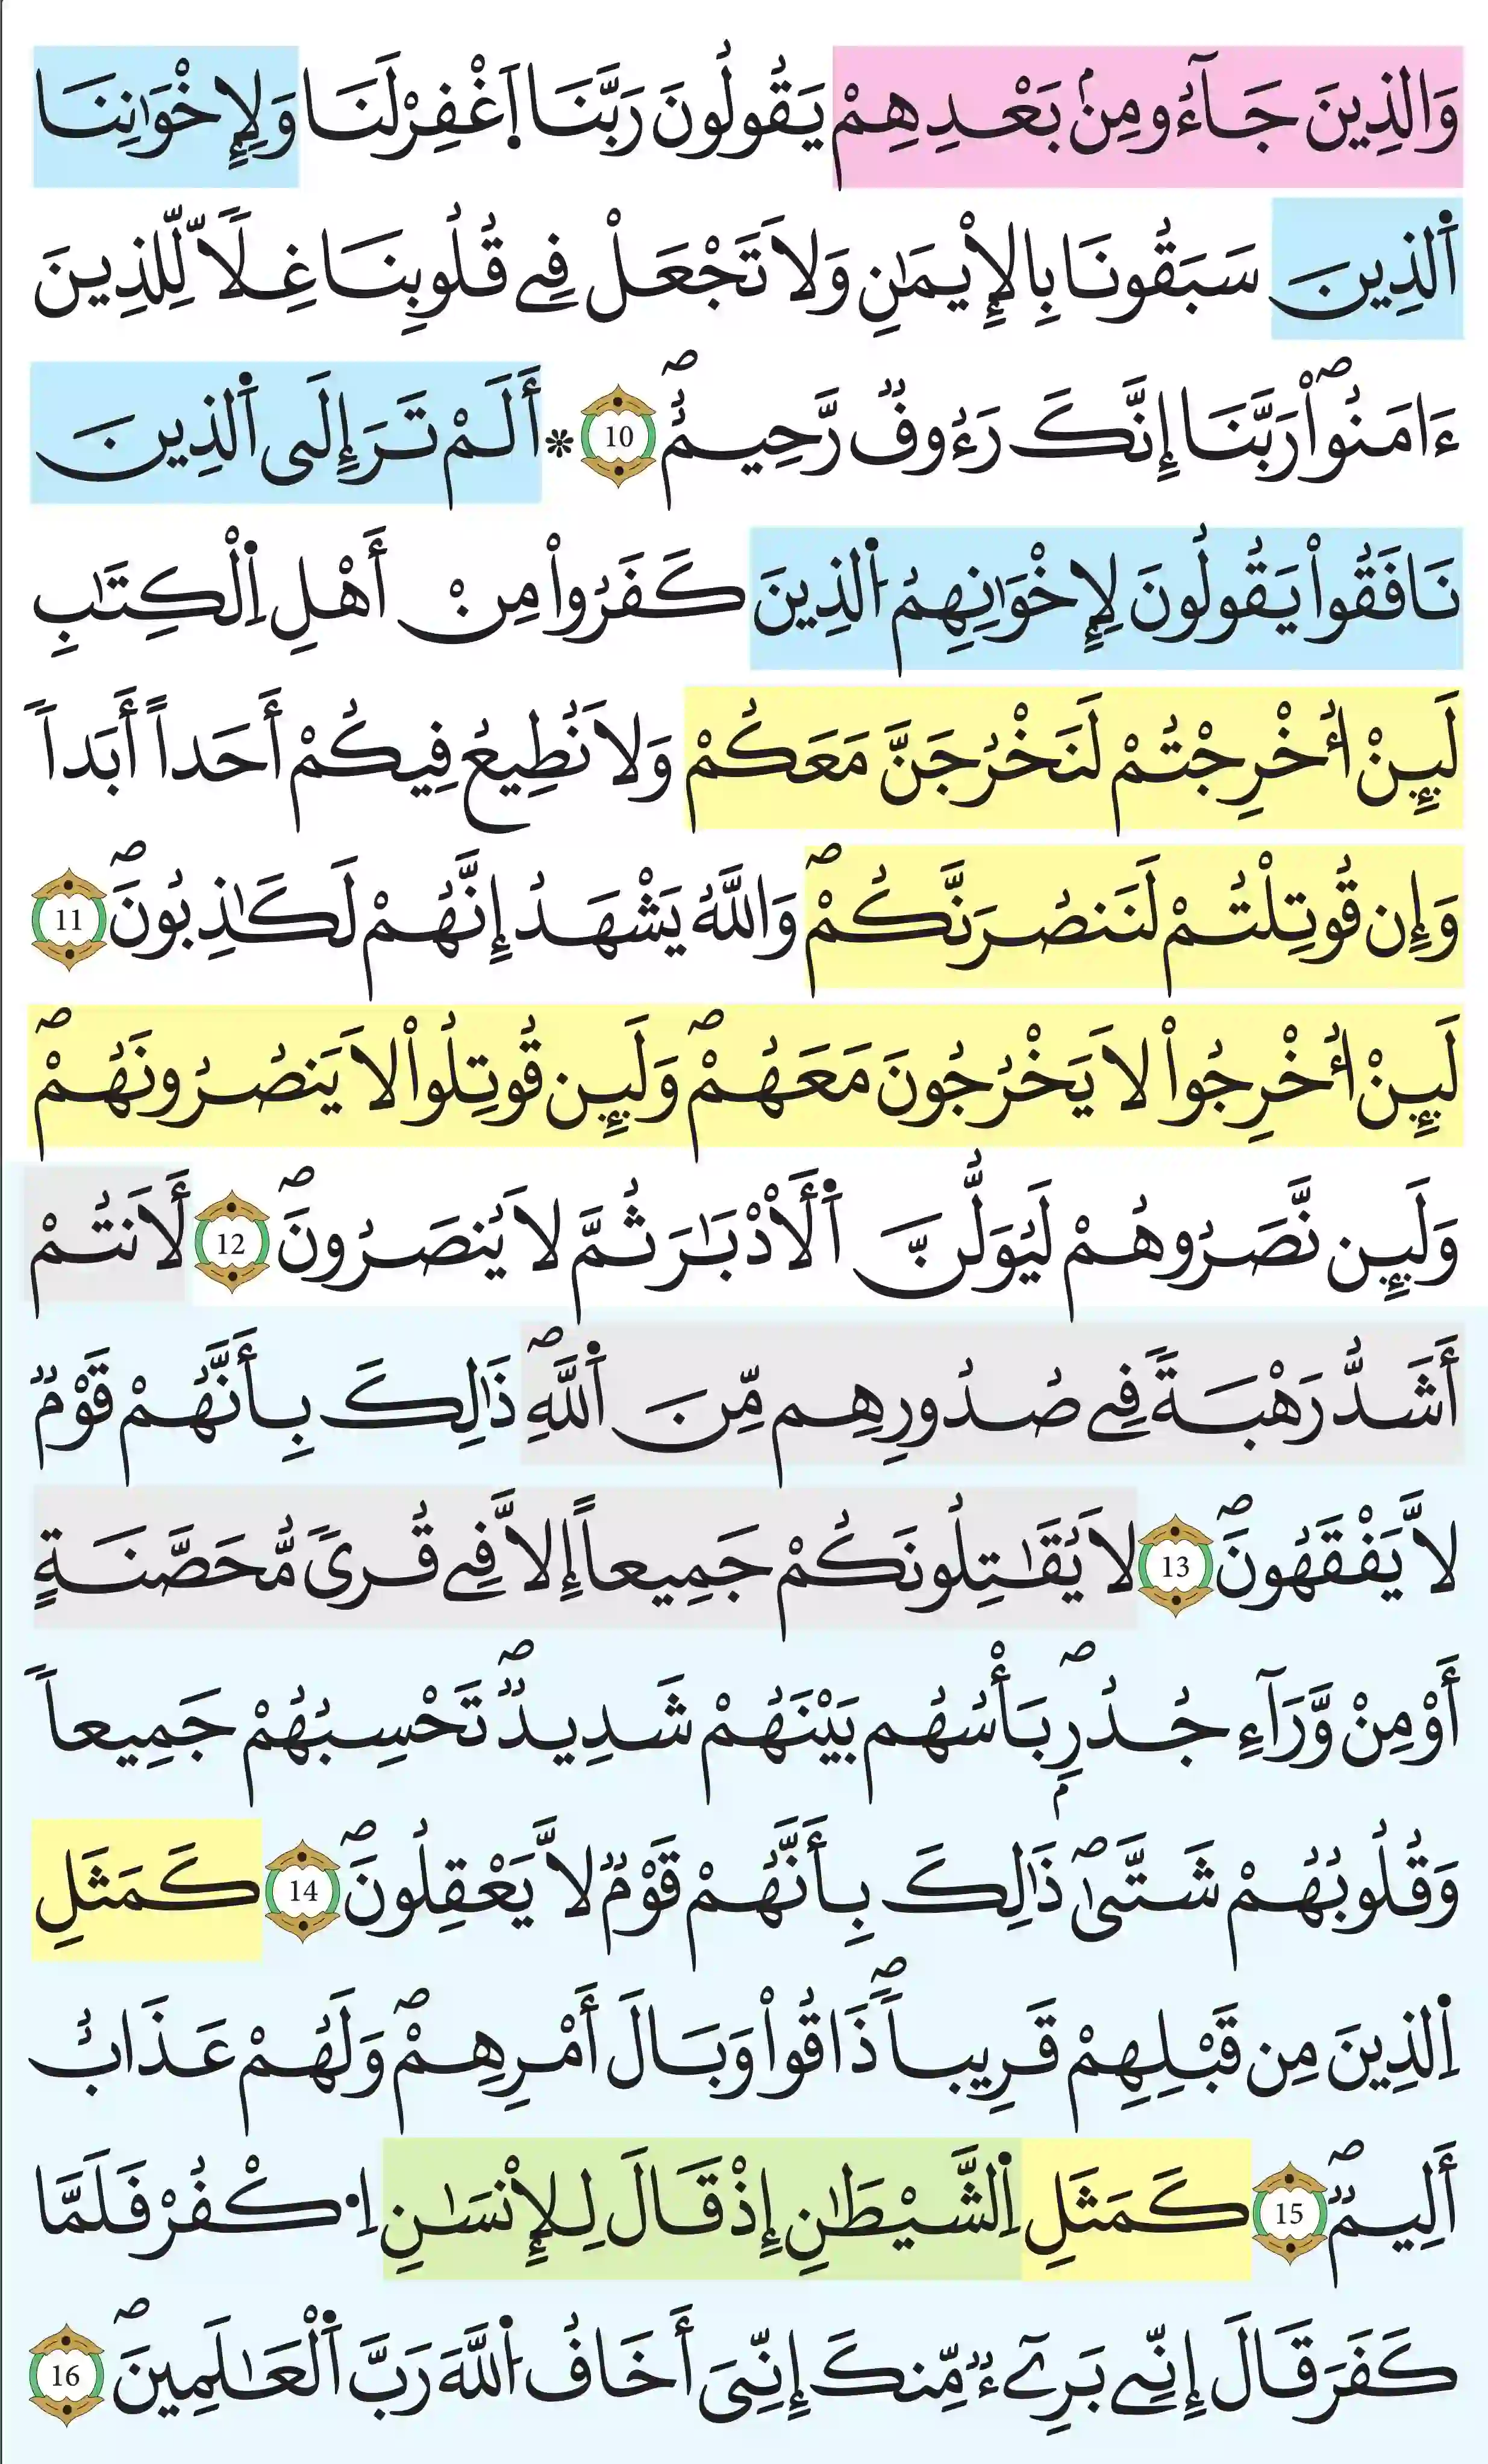 وَالذِينَ جَآءُو مِنۢ بَعْدِهِمْ يَقُولُونَ رَبَّنَا اَ۪غْفِرْ لَنَا وَلِإِخْوَٰنِنَا
اَ۬لذِينَ سَبَقُونَا بِالِايمَٰنِ وَلَا تَجْعَلْ فِے قُلُوبِنَا غِلّاٗ لِّلذِينَ
ءَامَنُواْۖ رَبَّنَآ إِنَّكَ رَءُوفٞ رَّحِيمٌۖ 10 ۞ أَلَمْ تَرَ إِلَى اَ۬لذِينَ
نَافَقُواْ يَقُولُونَ لِإِخْوَٰنِهِمُ اُ۬لذِينَ كَفَرُواْ مِنْ أَهْلِ اِ۬لْكِتَٰبِ
لَئِنْ أُخْرِجْتُمْ لَنَخْرُجَنَّ مَعَكُمْ وَلَا نُطِيعُ فِيكُمْ أَحَداً أَبَداٗ
وَإِن قُوتِلْتُمْ لَنَنصُرَنَّكُمْۖ وَاللَّهُ يَشْهَدُ إِنَّهُمْ لَكَٰذِبُونَۖ 11
لَئِنْ أُخْرِجُواْ لَا يَخْرُجُونَ مَعَهُمْۖ وَلَئِن قُوتِلُواْ لَا يَنصُرُونَهُمْۖ
وَلَئِن نَّصَرُوهُمْ لَيُوَلُّنَّ اَ۬لَأَدْبَٰرَ ثُمَّ لَا يُنصَرُونَۖ 12 لَأَنتُمْ
أَشَدُّ رَهْبَةٗ فِے صُدُورِهِم مِّنَ اَ۬للَّهِۖ ذَٰلِكَ بِأَنَّهُمْ قَوْمٞ
لَّا يَفْقَهُونَۖ 13 لَا يُقَٰتِلُونَكُمْ جَمِيعاً إِلَّا فِے قُرىٗ مُّحَصَّنَةٍ
أَوْ مِنْ وَّرَآءِ جُدُرِۢۖ بَأْسُهُم بَيْنَهُمْ شَدِيدٞۖ تَحْسِبُهُمْ جَمِيعاٗ
وَقُلُوبُهُمْ شَتَّىٰۖ ذَٰلِكَ بِأَنَّهُمْ قَوْمٞ لَّا يَعْقِلُونَۖ 14 كَمَثَلِ
اِ۬لذِينَ مِن قَبْلِهِمْ قَرِيباٗۖ ذَاقُواْ وَبَالَ أَمْرِهِمْۖ وَلَهُمْ عَذَابٌ
أَلِيمٞۖ 15 كَمَثَلِ اِ۬لشَّيْطَٰنِ إِذْ قَالَ لِلْإِنسَٰنِ اِ۟كْفُرْ فَلَمَّا
كَفَرَ قَالَ إِنِّے بَرِےٓءٞ مِّنكَ إِنِّىَ أَخَافُ اُ۬للَّهَ رَبَّ اَ۬لْعَٰلَمِينَۖ 16